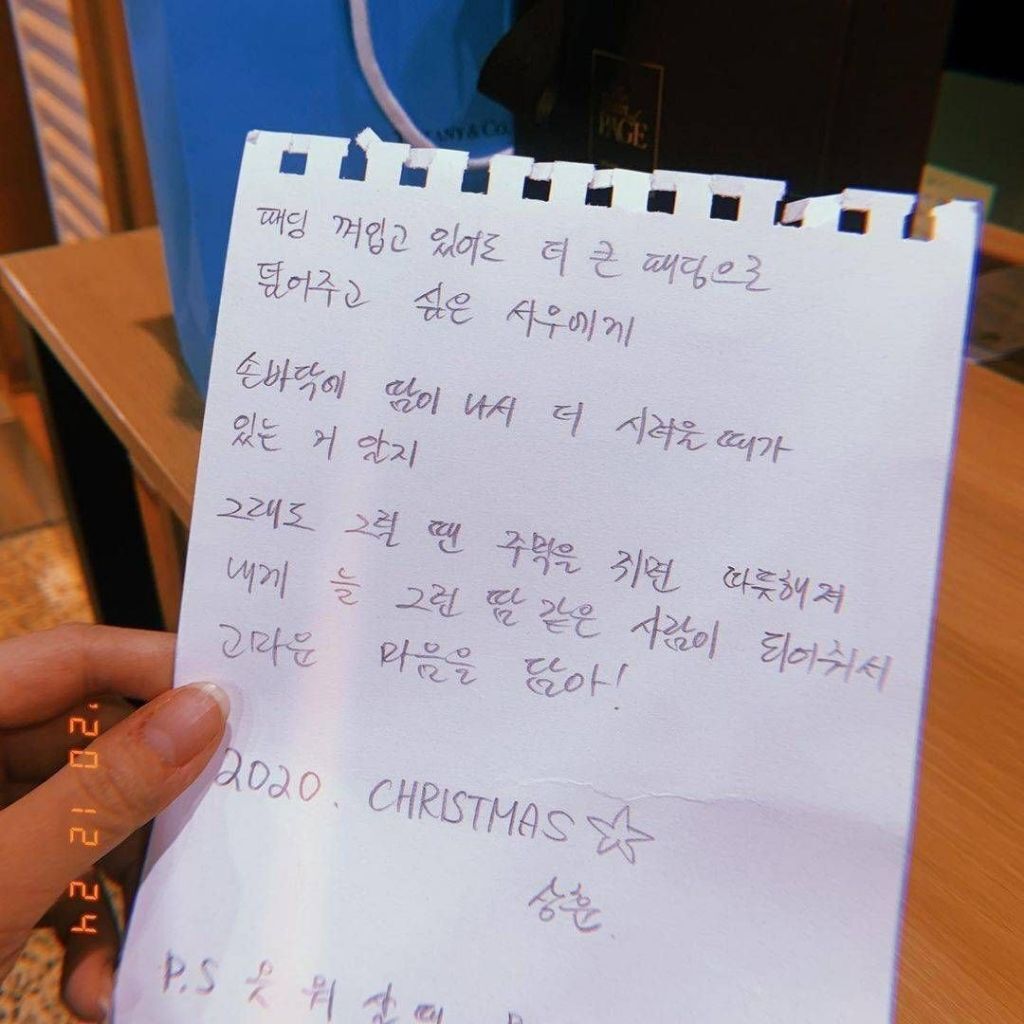 ANY & Co.
PAGE
패딩 껴입고 있어도 더 큰 패딩으로
덮어주고 싶은 사우에게
손바닥에 땀이 나서 더 시려울 때가
있는 거 알지
그래도 그럴 땐 주먹을 쥐면 따듯해져
내게 늘 그런 땀 같은 사람이 되어줘서
고마운 마음을 담아!
2020. CHRISTMAS
상훈
P.S 옷
'20 12 24